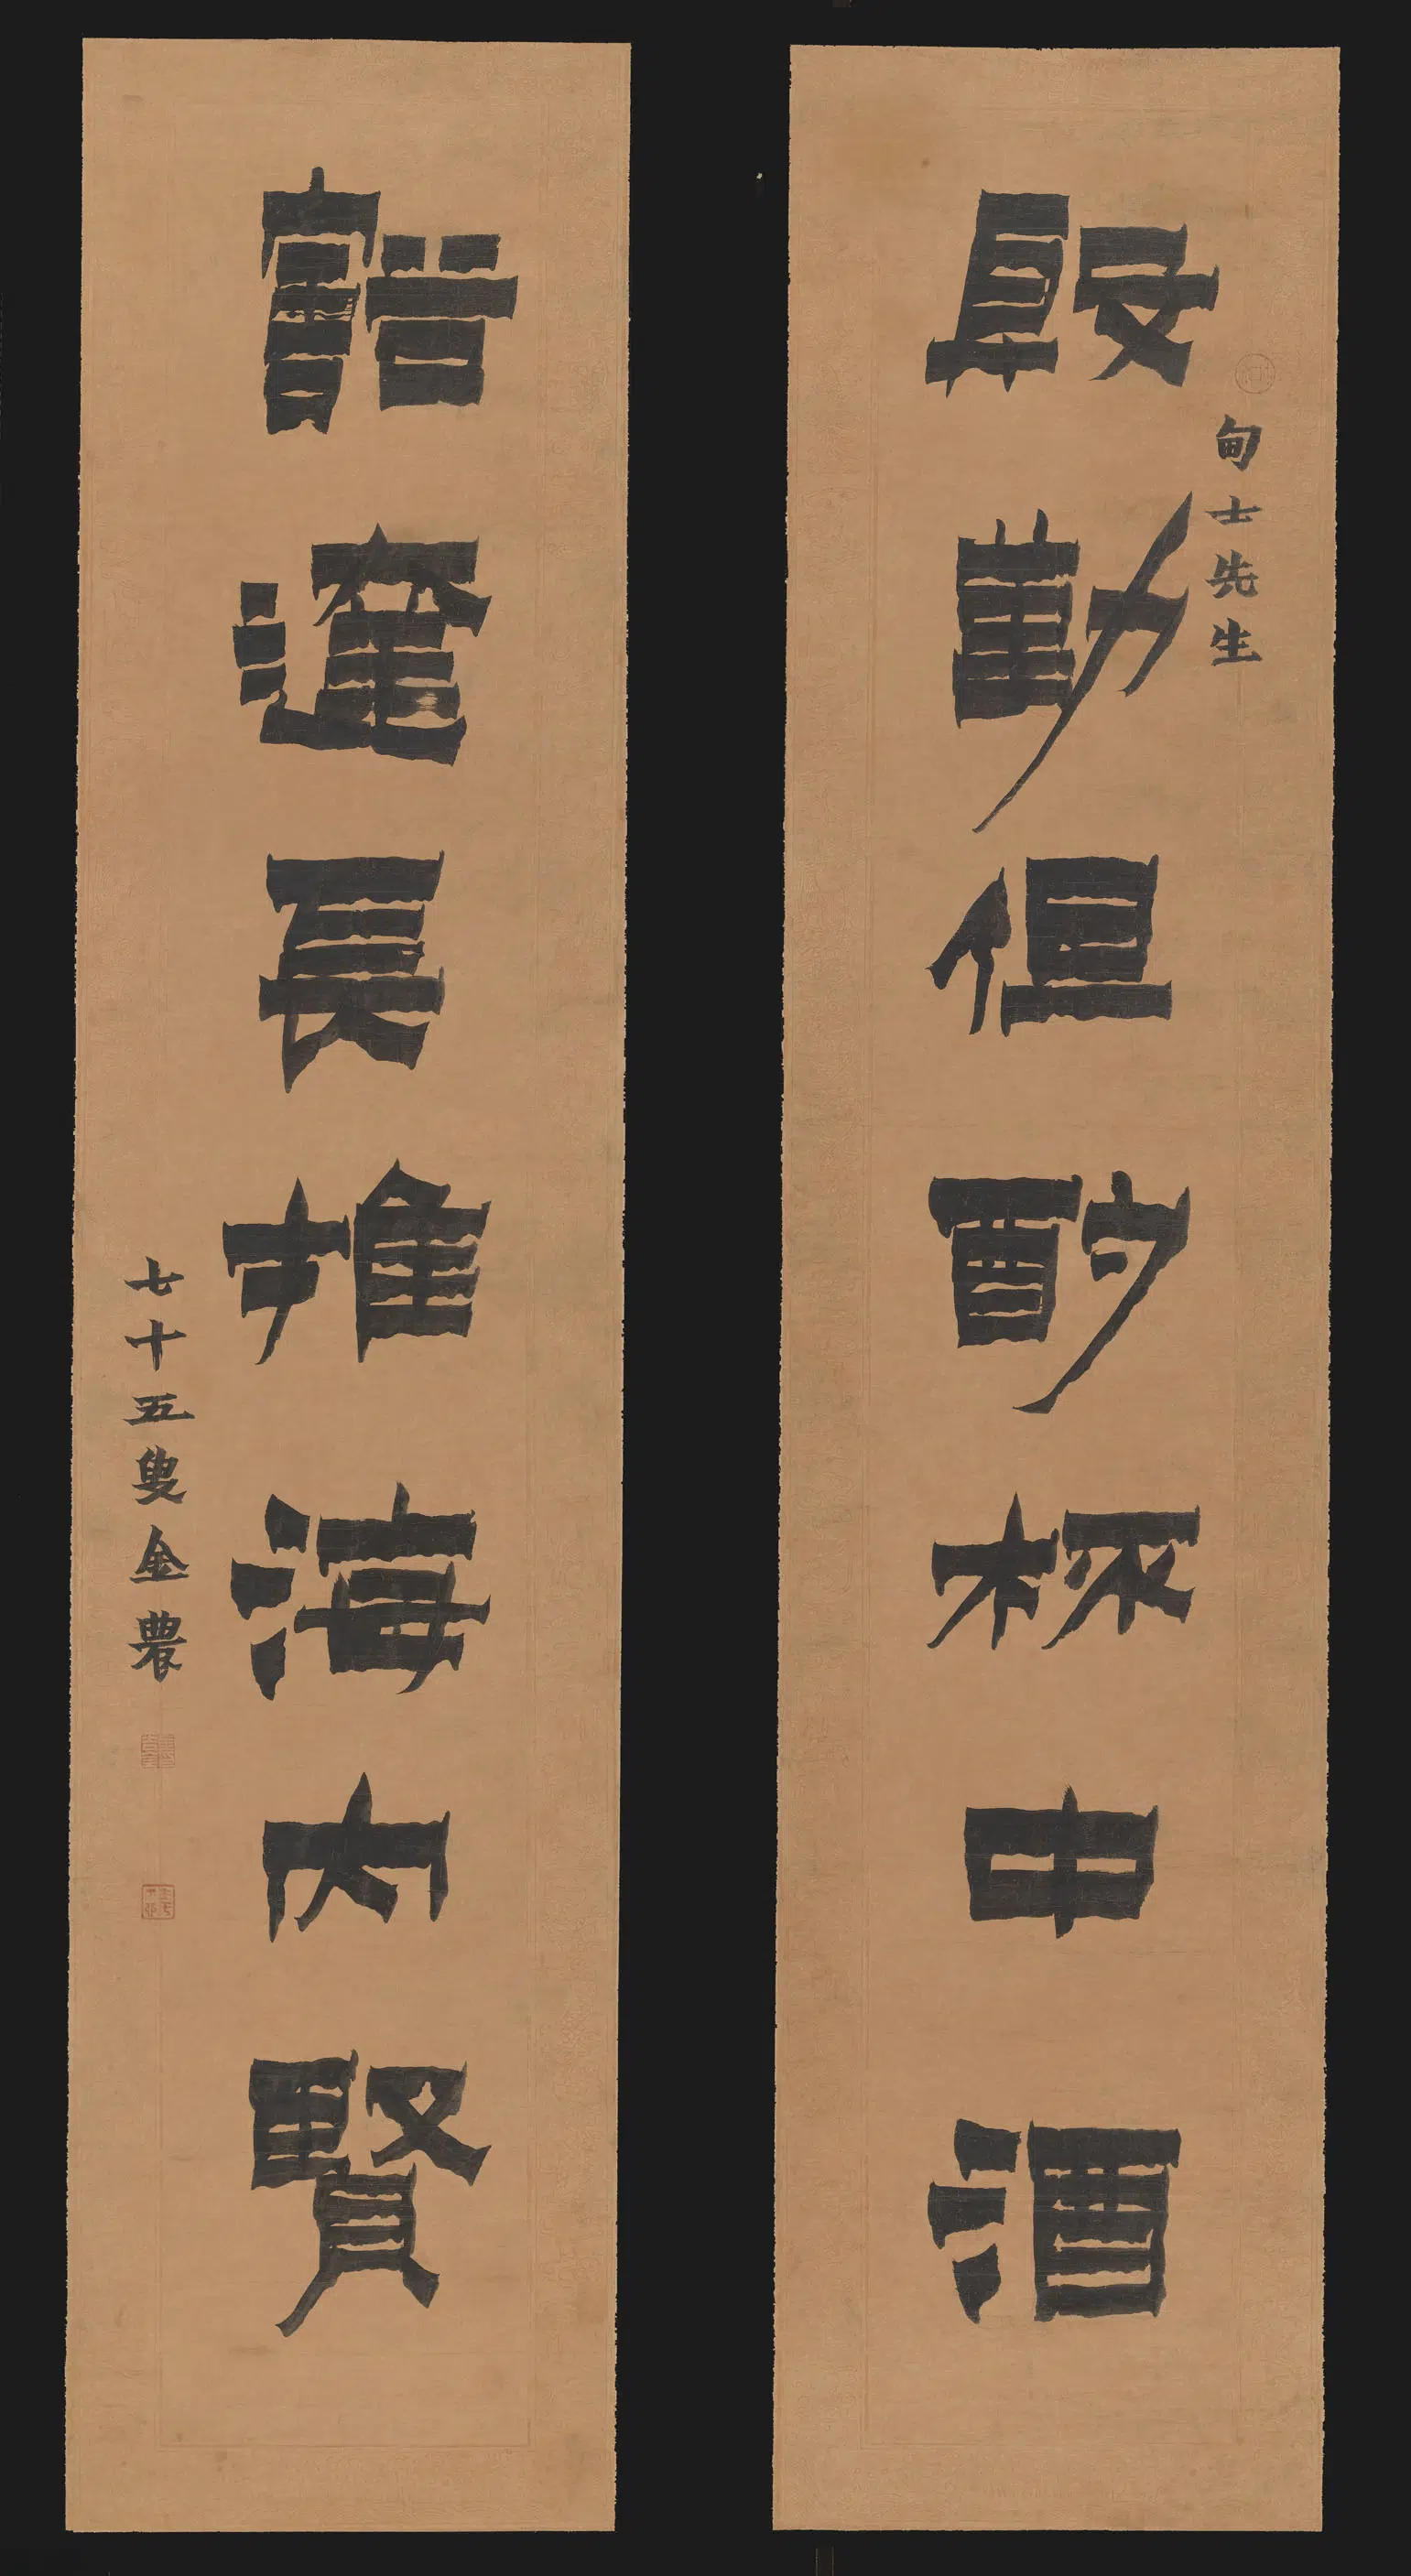 甸士先生
殷勤但酌杯中酒
豁達長推海內賢
七十五叟金農